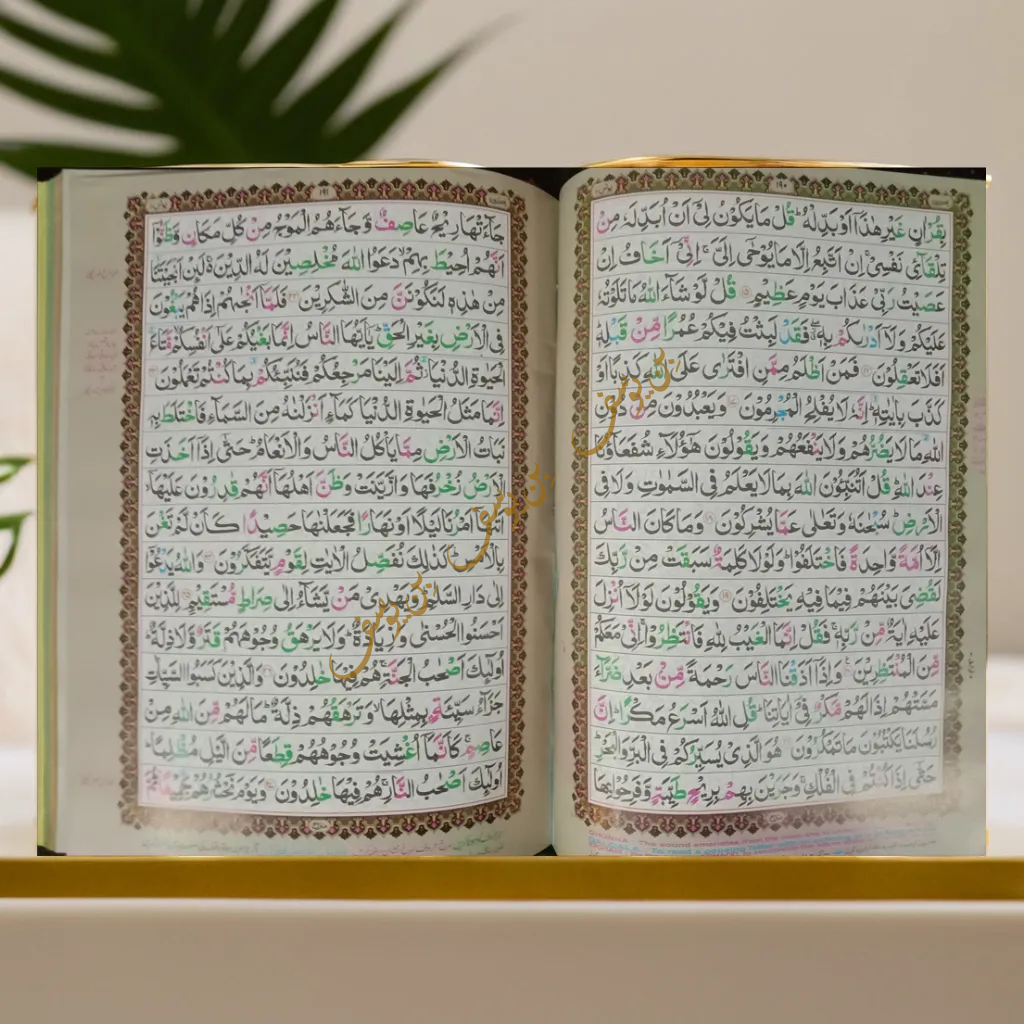 ۱۹۰
بِقُرْاٰنٍ غَيْرِ هٰذَآ اَوْ بَدِّلْهُ ؕ قُلْ مَا يَكُوْنُ لِىْٓ اَنْ اُبَدِّلَهٗ مِنْ
تِلْقَآئِ نَفْسِىْ ۚ اِنْ اَتَّبِعُ اِلَّا مَا يُوْحٰٓى اِلَىَّ ۚ اِنِّىْٓ اَخَافُ اِنْ
عَصَيْتُ رَبِّىْ عَذَابَ يَوْمٍ عَظِيْمٍ ۱۵ قُلْ لَّوْ شَآءَ اللّٰهُ مَا تَلَوْتُهٗ
عَلَيْكُمْ وَلَآ اَدْرٰىكُمْ بِهٖ ۖ فَقَدْ لَبِثْتُ فِيْكُمْ عُمُرًا مِّنْ قَبْلِهٖ ؕ
اَفَلَا تَعْقِلُوْنَ ۱۶ فَمَنْ اَظْلَمُ مِمَّنِ افْتَرٰى عَلَى اللّٰهِ كَذِبًا اَوْ
كَذَّبَ بِاٰيٰتِهٖ ؕ اِنَّهٗ لَا يُفْلِحُ الْمُجْرِمُوْنَ ۱۷ وَيَعْبُدُوْنَ مِنْ دُوْنِ
اللّٰهِ مَا لَا يَضُرُّهُمْ وَلَا يَنْفَعُهُمْ وَيَقُوْلُوْنَ هٰٓؤُلَآءِ شُفَعَآؤُنَا
عِنْدَ اللّٰهِ ؕ قُلْ اَتُنَبِّئُوْنَ اللّٰهَ بِمَا لَا يَعْلَمُ فِى السَّمٰوٰتِ وَلَا فِى
الْاَرْضِ ؕ سُبْحٰنَهٗ وَتَعٰلٰى عَمَّا يُشْرِكُوْنَ ۱۸ وَمَا كَانَ النَّاسُ
اِلَّآ اُمَّةً وَّاحِدَةً فَاخْتَلَفُوْا ؕ وَلَوْلَا كَلِمَةٌ سَبَقَتْ مِنْ رَّبِّكَ
لَقُضِىَ بَيْنَهُمْ فِيْمَا فِيْهِ يَخْتَلِفُوْنَ ۱۹ وَيَقُوْلُوْنَ لَوْلَآ اُنْزِلَ
عَلَيْهِ اٰيَةٌ مِّنْ رَّبِّهٖ ۚ فَقُلْ اِنَّمَا الْغَيْبُ لِلّٰهِ فَانْتَظِرُوْا ۚ اِنِّىْ مَعَكُمْ
مِّنَ الْمُنْتَظِرِيْنَ ۲۰ وَاِذَآ اَذَقْنَا النَّاسَ رَحْمَةً مِّنْۢ بَعْدِ ضَرَّآءَ
مَسَّتْهُمْ اِذَا لَهُمْ مَّكْرٌ فِىْٓ اٰيَاتِنَا ؕ قُلِ اللّٰهُ اَسْرَعُ مَكْرًا ؕ اِنَّ
رُسُلَنَا يَكْتُبُوْنَ مَا تَمْكُرُوْنَ ۲۱ هُوَ الَّذِىْ يُسَيِّرُكُمْ فِى الْبَرِّ وَالْبَحْرِ ؕ
حَتّٰٓى اِذَا كُنْتُمْ فِى الْفُلْكِ ۚ وَجَرَيْنَ بِهِمْ بِرِيْحٍ طَيِّبَةٍ وَّفَرِحُوْا بِهَا
۱۹۱
جَآءَتْهَا رِيْحٌ عَاصِفٌ وَّجَآءَهُمُ الْمَوْجُ مِنْ كُلِّ مَكَانٍ وَّظَنُّوْٓا
اَنَّهُمْ اُحِيْطَ بِهِمْ ۙ دَعَوُا اللّٰهَ مُخْلِصِيْنَ لَهُ الدِّيْنَ ۚ لَئِنْ اَنْجَيْتَنَا
مِنْ هٰذِهٖ لَنَكُوْنَنَّ مِنَ الشّٰكِرِيْنَ ۲۲ فَلَمَّآ اَنْجٰىهُمْ اِذَا هُمْ يَبْغُوْنَ
فِى الْاَرْضِ بِغَيْرِ الْحَقِّ ؕ يٰٓاَيُّهَا النَّاسُ اِنَّمَا بَغْيُكُمْ عَلٰٓى اَنْفُسِكُمْ ۙ مَّتَاعَ
الْحَيٰوةِ الدُّنْيَا ثُمَّ اِلَيْنَا مَرْجِعُكُمْ فَنُنَبِّئُكُمْ بِمَا كُنْتُمْ تَعْمَلُوْنَ ۲۳
اِنَّمَا مَثَلُ الْحَيٰوةِ الدُّنْيَا كَمَآءٍ اَنْزَلْنٰهُ مِنَ السَّمَآءِ فَاخْتَلَطَ بِهٖ
نَبَاتُ الْاَرْضِ مِمَّا يَاْكُلُ النَّاسُ وَالْاَنْعَامُ ؕ حَتّٰٓى اِذَآ اَخَذَتِ
الْاَرْضُ زُخْرُفَهَا وَازَّيَّنَتْ وَظَنَّ اَهْلُهَآ اَنَّهُمْ قٰدِرُوْنَ عَلَيْهَآ ۙ
اَتٰىهَآ اَمْرُنَا لَيْلًا اَوْ نَهَارًا فَجَعَلْنٰهَا حَصِيْدًا كَاَنْ لَّمْ تَغْنَ
بِالْاَمْسِ ؕ كَذٰلِكَ نُفَصِّلُ الْاٰيٰتِ لِقَوْمٍ يَّتَفَكَّرُوْنَ ۲۴ وَاللّٰهُ يَدْعُوْٓا
اِلٰى دَارِ السَّلٰمِ ؕ وَيَهْدِىْ مَنْ يَّشَآءُ اِلٰى صِرَاطٍ مُّسْتَقِيْمٍ ۲۵ لِلَّذِيْنَ
اَحْسَنُوا الْحُسْنٰى وَزِيَادَةٌ ؕ وَلَا يَرْهَقُ وُجُوْهَهُمْ قَتَرٌ وَّلَا ذِلَّةٌ ؕ
اُولٰٓئِكَ اَصْحٰبُ الْجَنَّةِ ۚ هُمْ فِيْهَا خٰلِدُوْنَ ۲۶ وَالَّذِيْنَ كَسَبُوا السَّيِّاٰتِ
جَزَآءُ سَيِّئَةٍۢ بِمِثْلِهَا ۙ وَتَرْهَقُهُمْ ذِلَّةٌ ؕ مَا لَهُمْ مِّنَ اللّٰهِ مِنْ
عَاصِمٍ ۚ كَاَنَّمَآ اُغْشِيَتْ وُجُوْهُهُمْ قِطَعًا مِّنَ الَّيْلِ مُظْلِمًا ؕ
اُولٰٓئِكَ اَصْحٰبُ النَّارِ ۚ هُمْ فِيْهَا خٰلِدُوْنَ ۲۷ وَيَوْمَ نَحْشُرُهُمْ جَمِيْعًا ثُمَّ
بن یوسف
بن یوسف
بن یوسف